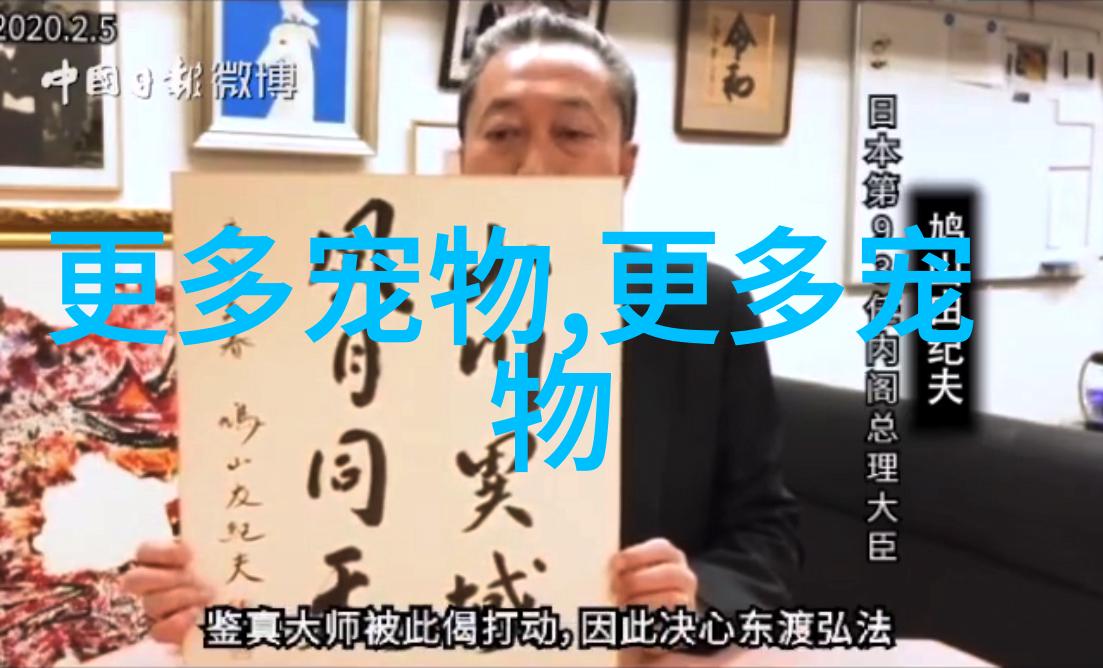 2020.2.5
中國日報微博
令和
更多宠物,更多宠
物
日本第93任内阁总理大臣
鸠山由纪夫
山川異域
風月同天
鳩山友紀夫
鉴真大师被此偈打动,因此决心东渡弘法